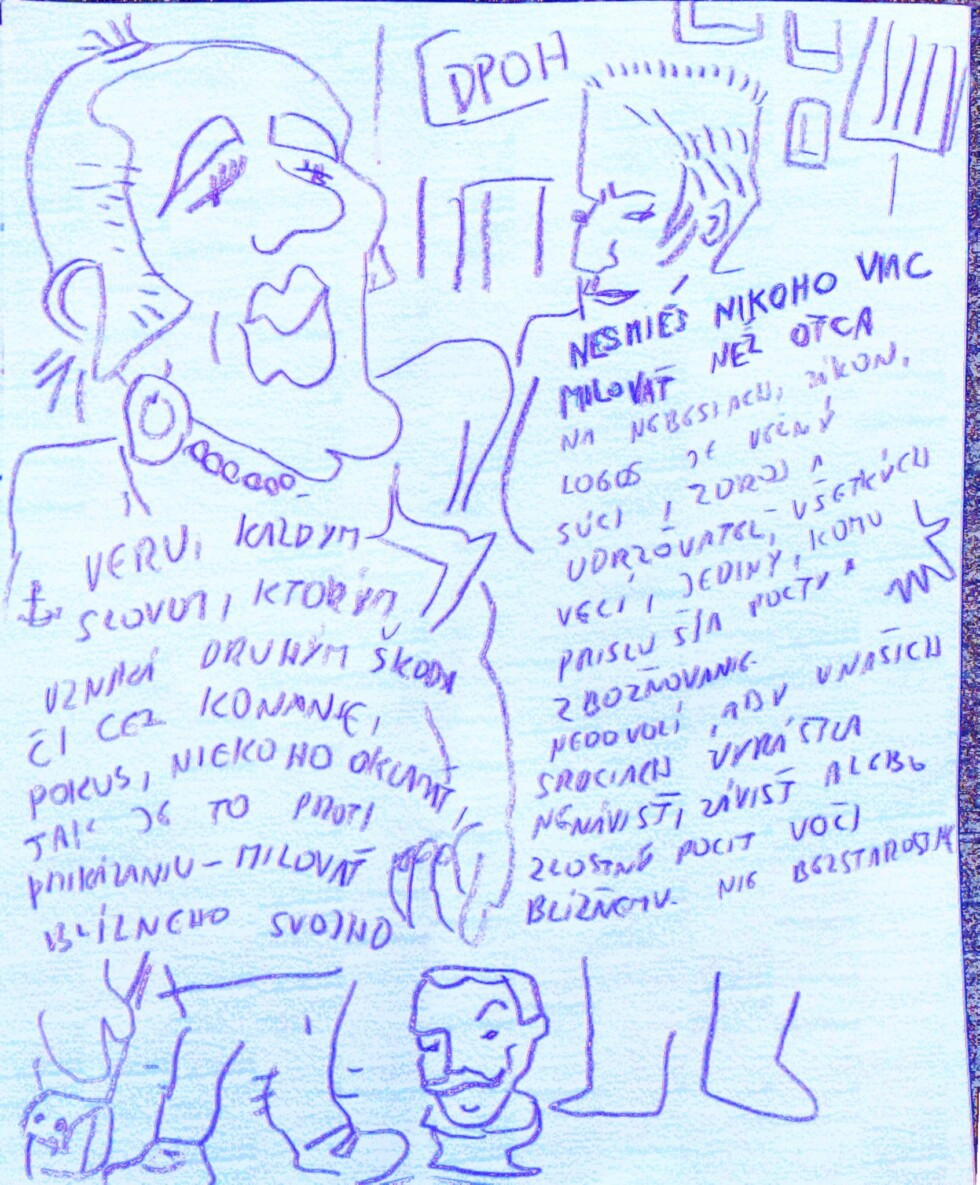 DPOH
NESMIEŠ NIKOHO VIAC
MILOVAŤ NEŽ OTCA
NA NEBESIACH, ZÁKON,
LOGOS JE VEČNÝ
SÚCI, ZDROJ A
UDRŽOVATEL, VŠETKÝCH
VECÍ, JEDINÝ, KOMU
PRISLÚ POCTY A
ZBOŽŇOVANIE
NEDOVOLÍ, ABY V NAŠICH
SRDCIACH VYRÁSTLA
NENÁVISŤ, ZÁVISŤ ALEBO
ZLOSTNÉ POCIT VOČI
BLÍŽNEMU. NIE BEZSTAROSTN
VERU, KAŽDYM
SLOVOM, KTORÝM
VZNIKÁ DRUHÝM ŠKODA
ČI CEZ KONANIE,
POKUS, NIEKOHO OKLAMAŤ,
TAK JE TO PROTI
PRIKÁZANIU - MILOVAŤ
BLÍZNEHO SVOJHO